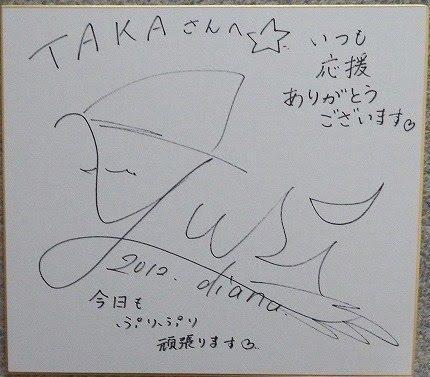 TAKAさんへ☆
いつも
応援
ありがとう
ございます♡
2012. diana.
今日も
ぷりぷり
頑張ります♡